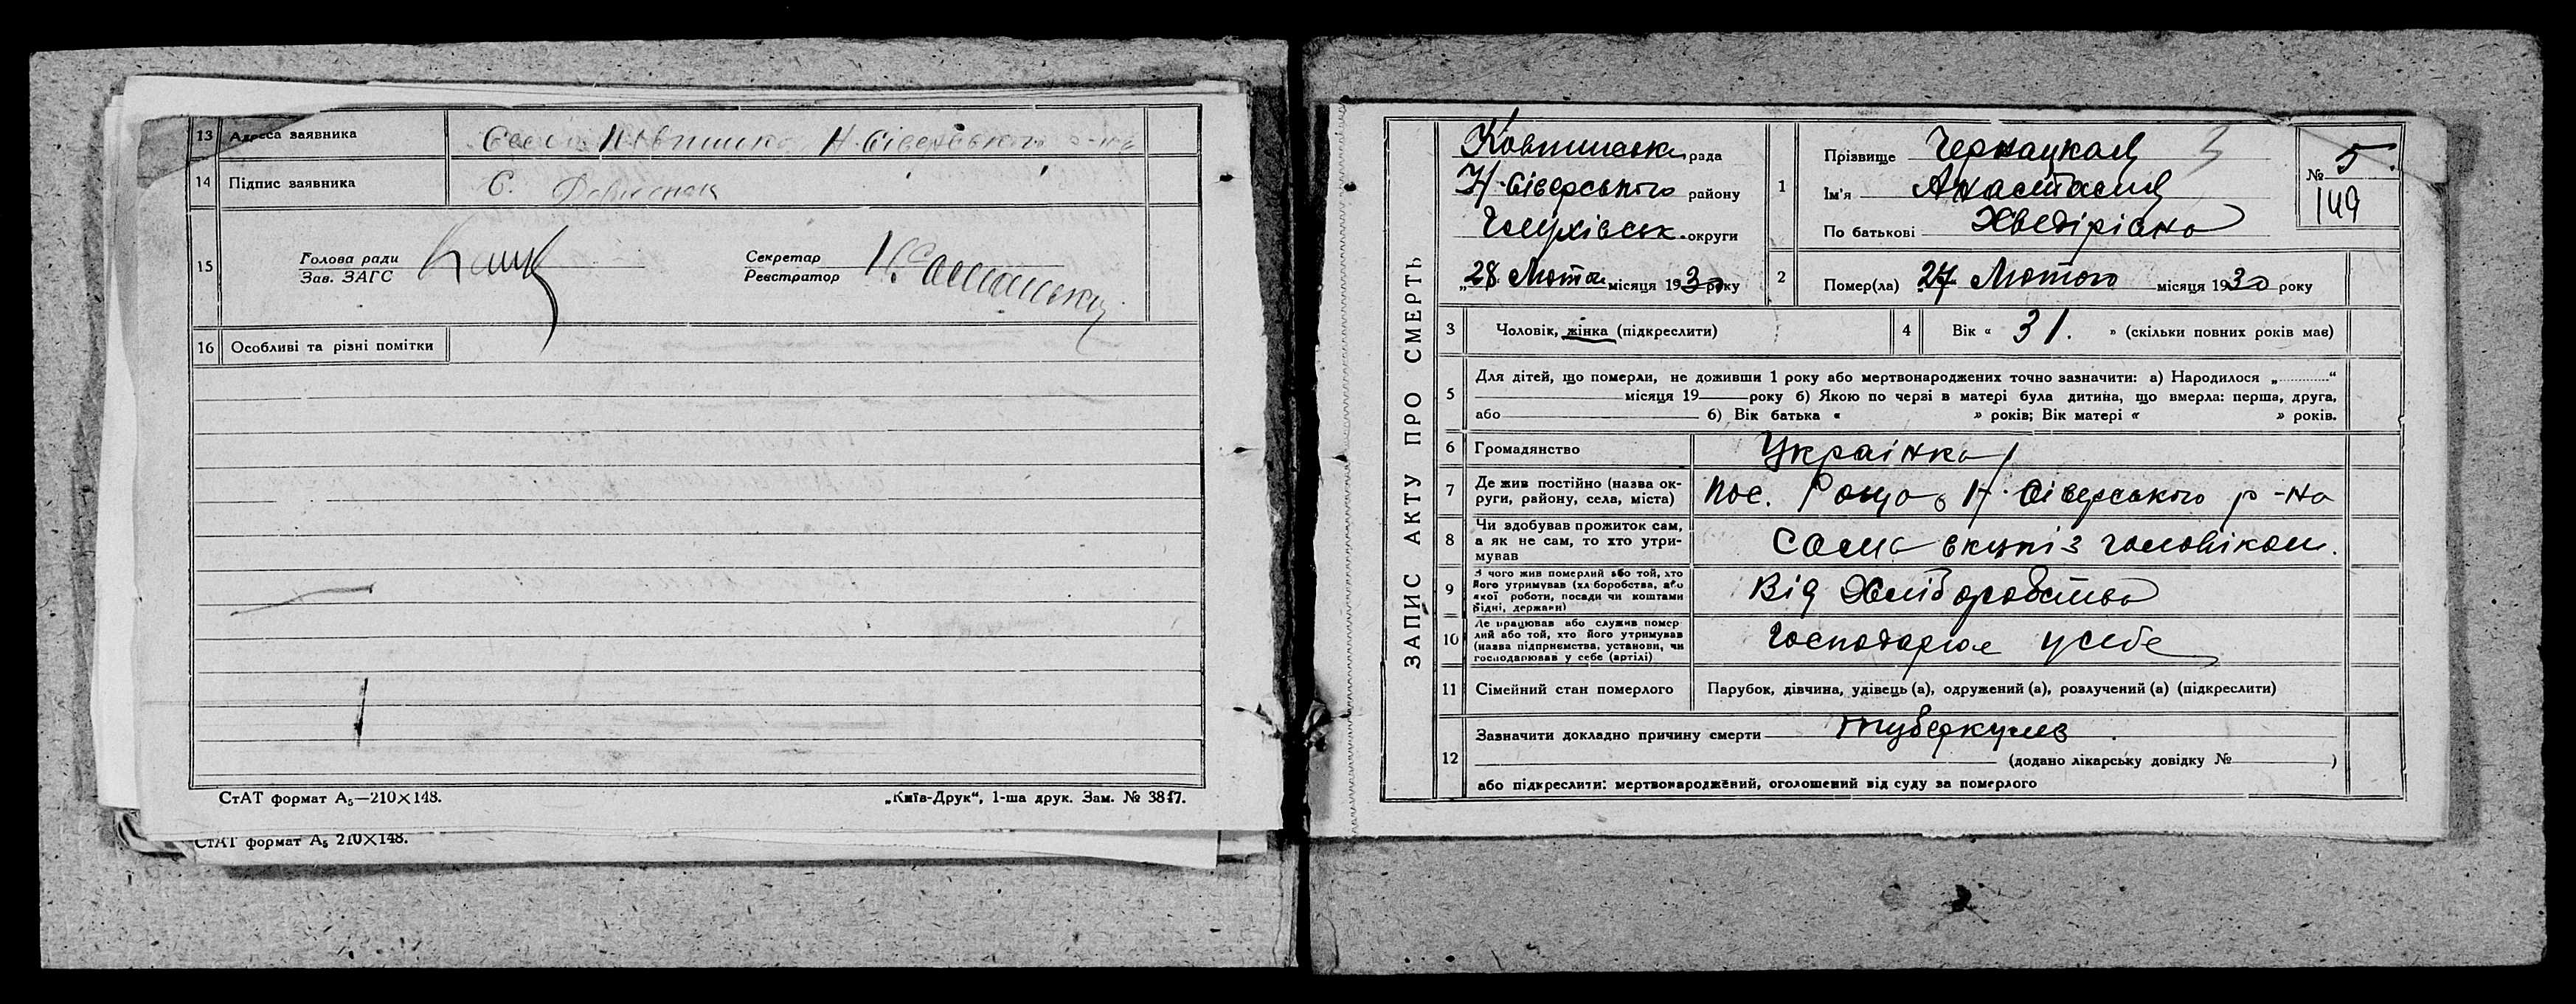 13 Адреса заявника Село Ковтинко Н-Сіверського р-на
14 Підпис заявника С.
15 Голова ради
Зав. ЗАГС
Секретар
Реєстратор
16 Особливі та різні помітки
СтАТ формат А5—210×148. „Київ-Друк“, 1-ша друк. Зам. № 3847.
СтАТ формат А5 210×148.
ЗАПИС АКТУ ПРО СМЕРТЬ
рада
Н-Сіверського району
Глухівськ. округи
„28 Лютого місяця 1930 року
1 Прізвище
Ім'я Анастасия
По батькові Хведірівна
№ 5
149
2 Помер(ла) 27 Лютого місяця 1930 року
3 Чоловік, жінка (підкреслити)
4 Вік « 31. » (скільки повних років має)
5 Для дітей, що померли, не доживши 1 року або мертвонароджених точно зазначити: а) Народилося „ “
місяця 19 року б) Якою по черзі в матері була дитина, що вмерла: перша, друга,
або б) Вік батька « » років; Вік матері « » років.
6 Громадянство Українка
7 Де жив постійно (назва ок-
руги, району, села, міста) пос. Роща Н-Сіверського р-на
8 Чи здобував прожиток сам,
а як не сам, то хто утри-
мував Сама вкупі з чоловіком.
9 З чого жив померлий або той, хто
його утримував (хліборобства, або
якої роботи, посади чи коштами
рідні, держави) Від Хліборобства
10 Де працював або служив помер
лий або той, хто його утримував
(назва підприємства, установи, чи
господарював у себе (артілі) Господарює у себе
11 Сімейний стан померлого Парубок, дівчина, удівець (а), одружений (а), розлучений (а) (підкреслити)
12 Зазначити докладно причину смерти туберкулез
(додано лікарську довідку № )
або підкреслити: мертвонароджений, оголошений від суду за померлого